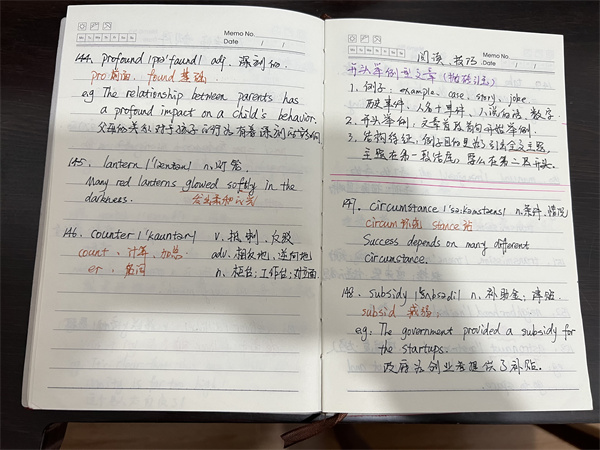 Memo No.
Mo Tu We Th Fr Sa Su
Date / /
144. profound |prə'faund| adj. 深刻的
pro 向前 found 基础
eg The relationship between parents has
a profound impact on a child's behavior.
父母的关系对于孩子的行为有着深刻的影响
145. lantern |'læntən| n. 灯笼
Many red lanterns glowed softly in the
darkness. 发出柔和的光
146. counter |'kauntər| v. 抵制, 反驳
count. 计算. 加 adv. 相反地, 逆向地
er. n. 柜台; 工作台; 对立面
Memo No.
Mo Tu We Th Fr Sa Su
Date / /
阅读. 技巧
开头举例型文章
1. 例子: example. case. story. joke.
历史事件. 人名+事件. 人说的话. 数字
2. 开头举例: 文章首段前句开始举例.
3. 结构特征: 例子目的是为了引出全文主题,
主题在第一段结尾, 要么在第二段开头.
147. circumstance |'sə:kəmstəns| n. 条件. 情况
circum 环绕 stance 站
Success depends on many different
circumstance.
148. subsidy |'sʌbsədi| n. 补助金; 津贴
subsid
eg: The government provided a subsidy for
the startups.
政府为创业者提供了补贴.